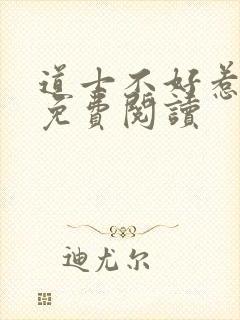 道士不好惹
免費閱讀
迪尤尔